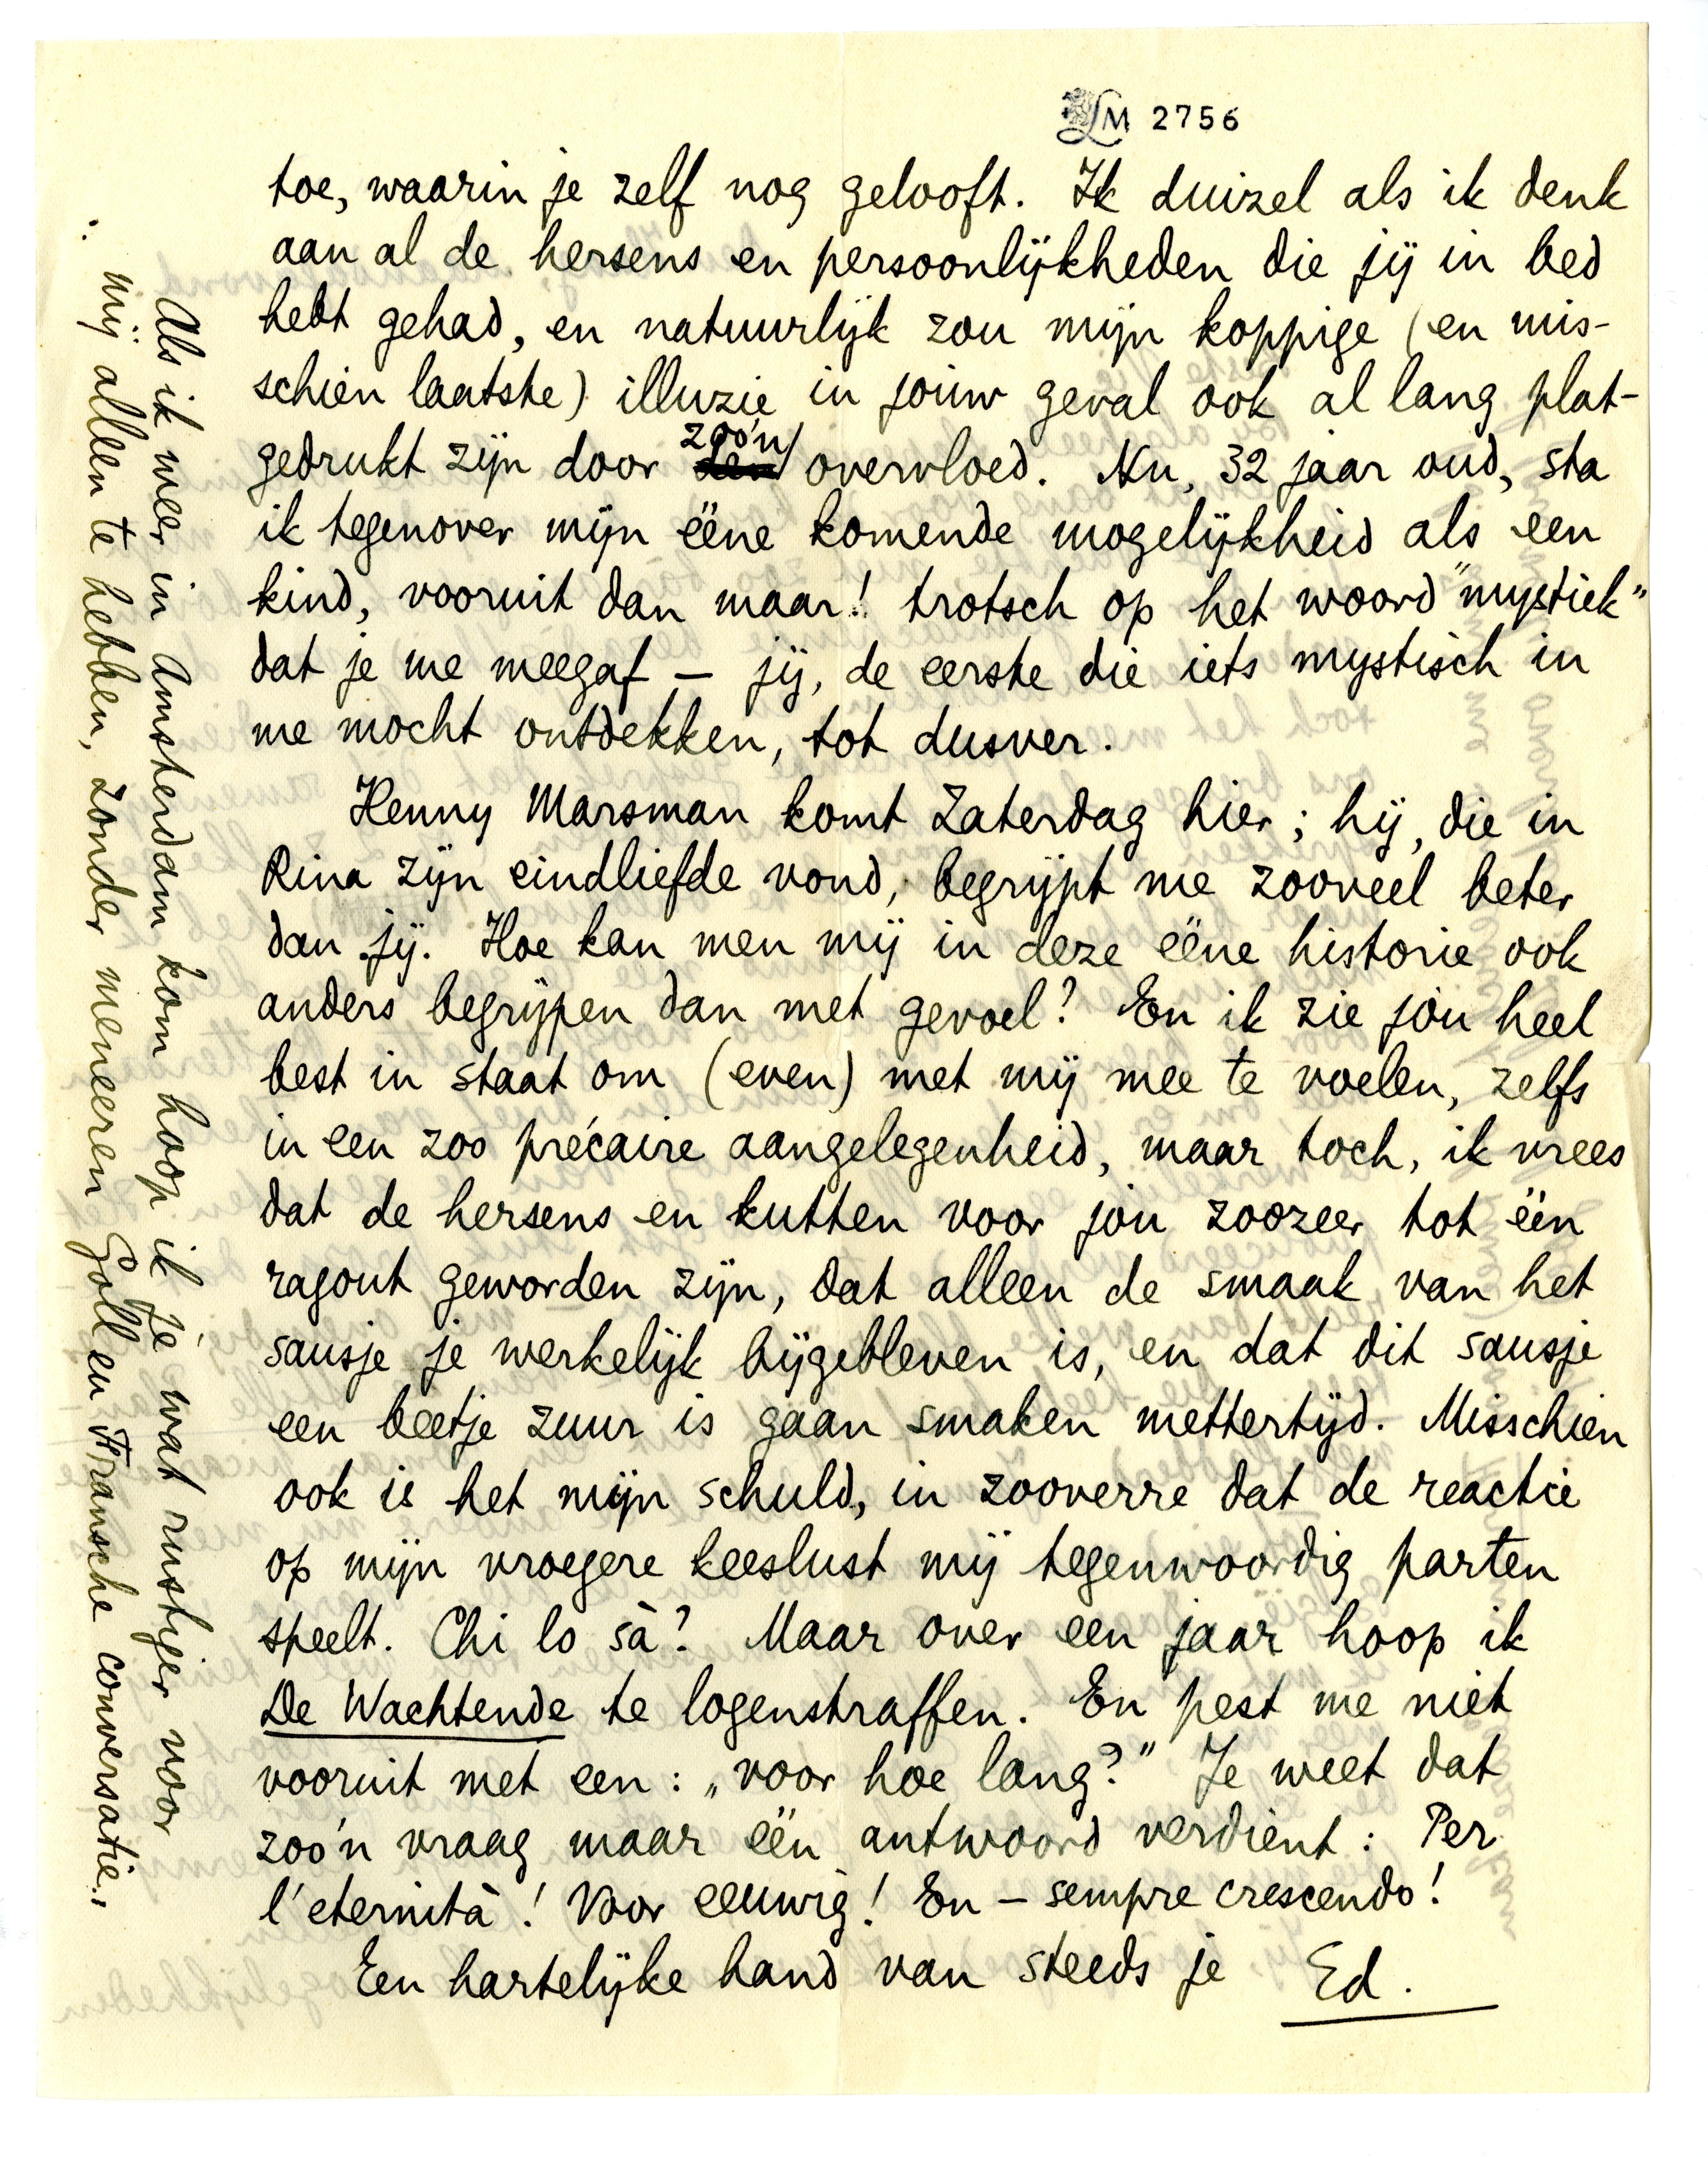 LM 2756
toe, waarin je zelf nog gelooft. Ik duizel als ik denk
aan al de hersens en persoonlijkheden die jij in bed
hebt gehad, en natuurlijk zou mijn koppige (en mis-
schien laatste) illuzie in jouw geval ook al lang plat-
gedrukt zijn door zoo'n overvloed. Nu, 32 jaar oud, sta
ik tegenover mijn ééne komende mogelijkheid als een
kind, vooruit dan maar! trotsch op het woord "mystiek"
dat je me meegaf – jij, de eerste die iets mystisch in
me mocht ontdekken, tot dusver.
Henny Marsman komt Zaterdag hier; hij, die in
Rina zijn eindliefde vond, begrijpt me zooveel beter
dan jij. Hoe kan men mij in deze ééne historie ook
anders begrijpen dan met gevoel? En ik zie jóu heel
best in staat om (even) met mij mee te voelen, zelfs
in een zoo précaire aangelegenheid, maar toch, ik vrees
dat de hersens en kutten voor jóu zoozeer tot één
ragout geworden zijn, dat alleen de smaak van het
sausje je werkelijk bijgebleven is, en dat dit sausje
een beetje zuur is gaan smaken mettertijd. Misschien
ook is het mijn schuld, in zooverre dat de reactie
op mijn vroegere keeslust mij tegenwoordig parten
speelt. Chi lo sà? Maar over een jaar hoop ik
De Wachtende te logenstraffen. En pest me niet
vooruit met een: „voor hoe lang?" Je weet dat
zoo'n vraag maar één antwoord verdient: Per
l'eternità! Voor eeuwig! En – sempre crescendo!
Een hartelijke hand van steeds je Ed.
Als ik weer in Amsterdam kom hoop ik je wat rustiger voor
mij alleen te hebben, zonder meneeren Goll en Fransche conversatie.